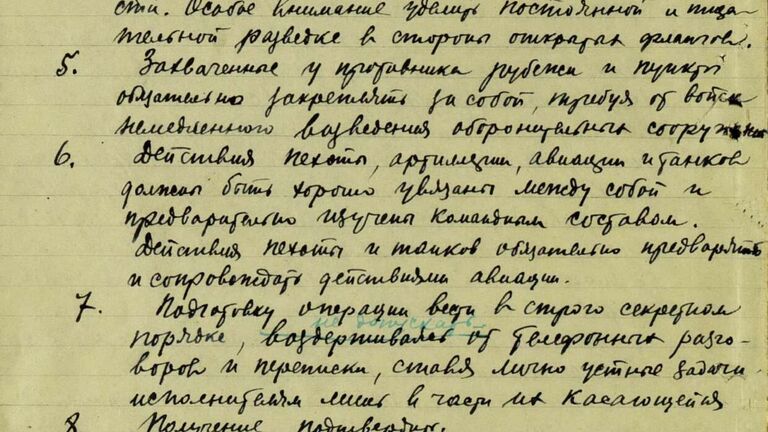 сти. Особое внимание уделить постоянной и тща-
тельной разведке в стороны открытых флангов.
5. Захваченные у противника рубежи и пункты
обязательно закреплять за собой, требуя от войск
немедленного возведения оборонительных сооружений
6. Действия пехоты, артиллерии, авиации и танков
должны быть хорошо увязаны между собой и
предварительно изучены командным составом.
Действия пехоты и танков обязательно предварять
и сопровождать действиями авиации.
7. Подготовку операции вести в строго секретном
не допускать
порядке, воздерживаясь от телефонных разго-
воров и переписки, ставя лично устные задачи
исполнителям лишь в части их касающейся
8. Получение подтвердить.